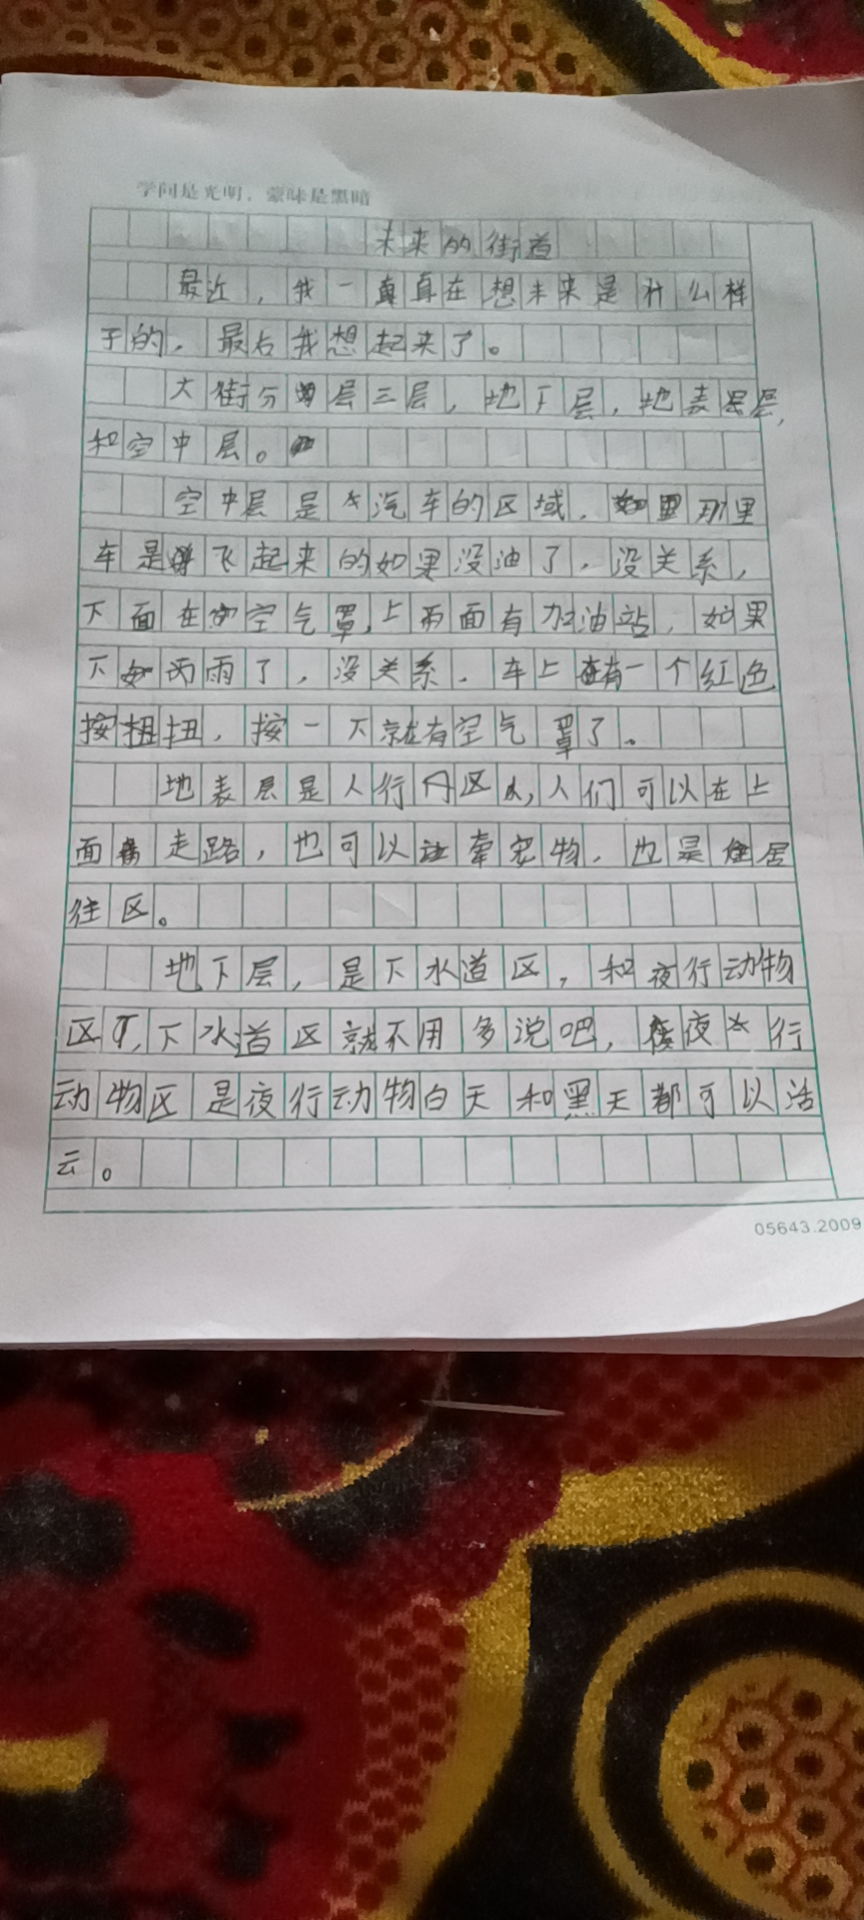 学问是光明，蒙昧是黑暗
未来的街道
最近，我一真真在想未来是什么样
子的，最后我想起来了。
大街分层三层，地下层，地表层，
和空中层。
空中层是汽车的区域，那里
车是飞起来的如果没油了，没关系，
下面在空气罩，上面有加油站，如果
下雨了，没关系，车上有一个红色
按扭扭，按一下就有空气罩了。
地表层是人行区，人们可以在上
面走路，也可以牵宠物，也是居
住区。
地下层，是下水道区，和夜行动物
区，下水道区就不用多说吧，夜行
动物区是夜行动物白天和黑天都可以活
云。
05643.2009